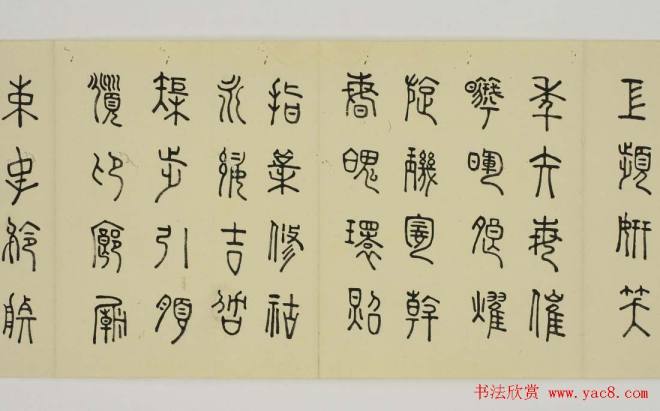 工顰妍笑
年矢每催
曦暉朗耀
旋璣懸斡
晦魄環照
指薪修祜
永綏吉劭
矩步引領
俯仰廊廟
束帶矜莊
书法欣赏 www.yac8.com